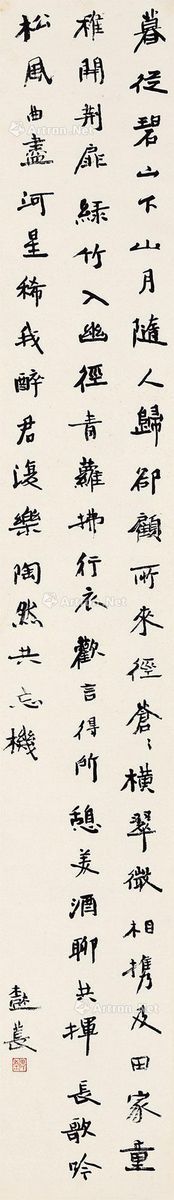 暮從碧山下山月隨人歸卻顧所來徑蒼〻橫翠微相攜及田家童
稚開荆扉綠竹入幽徑青蘿拂行衣歡言得所憩美酒聊共揮長歌吟
松風曲盡河星稀我醉君復樂陶然共忘機
Artron.Net
Artron.Net
Artron.Net